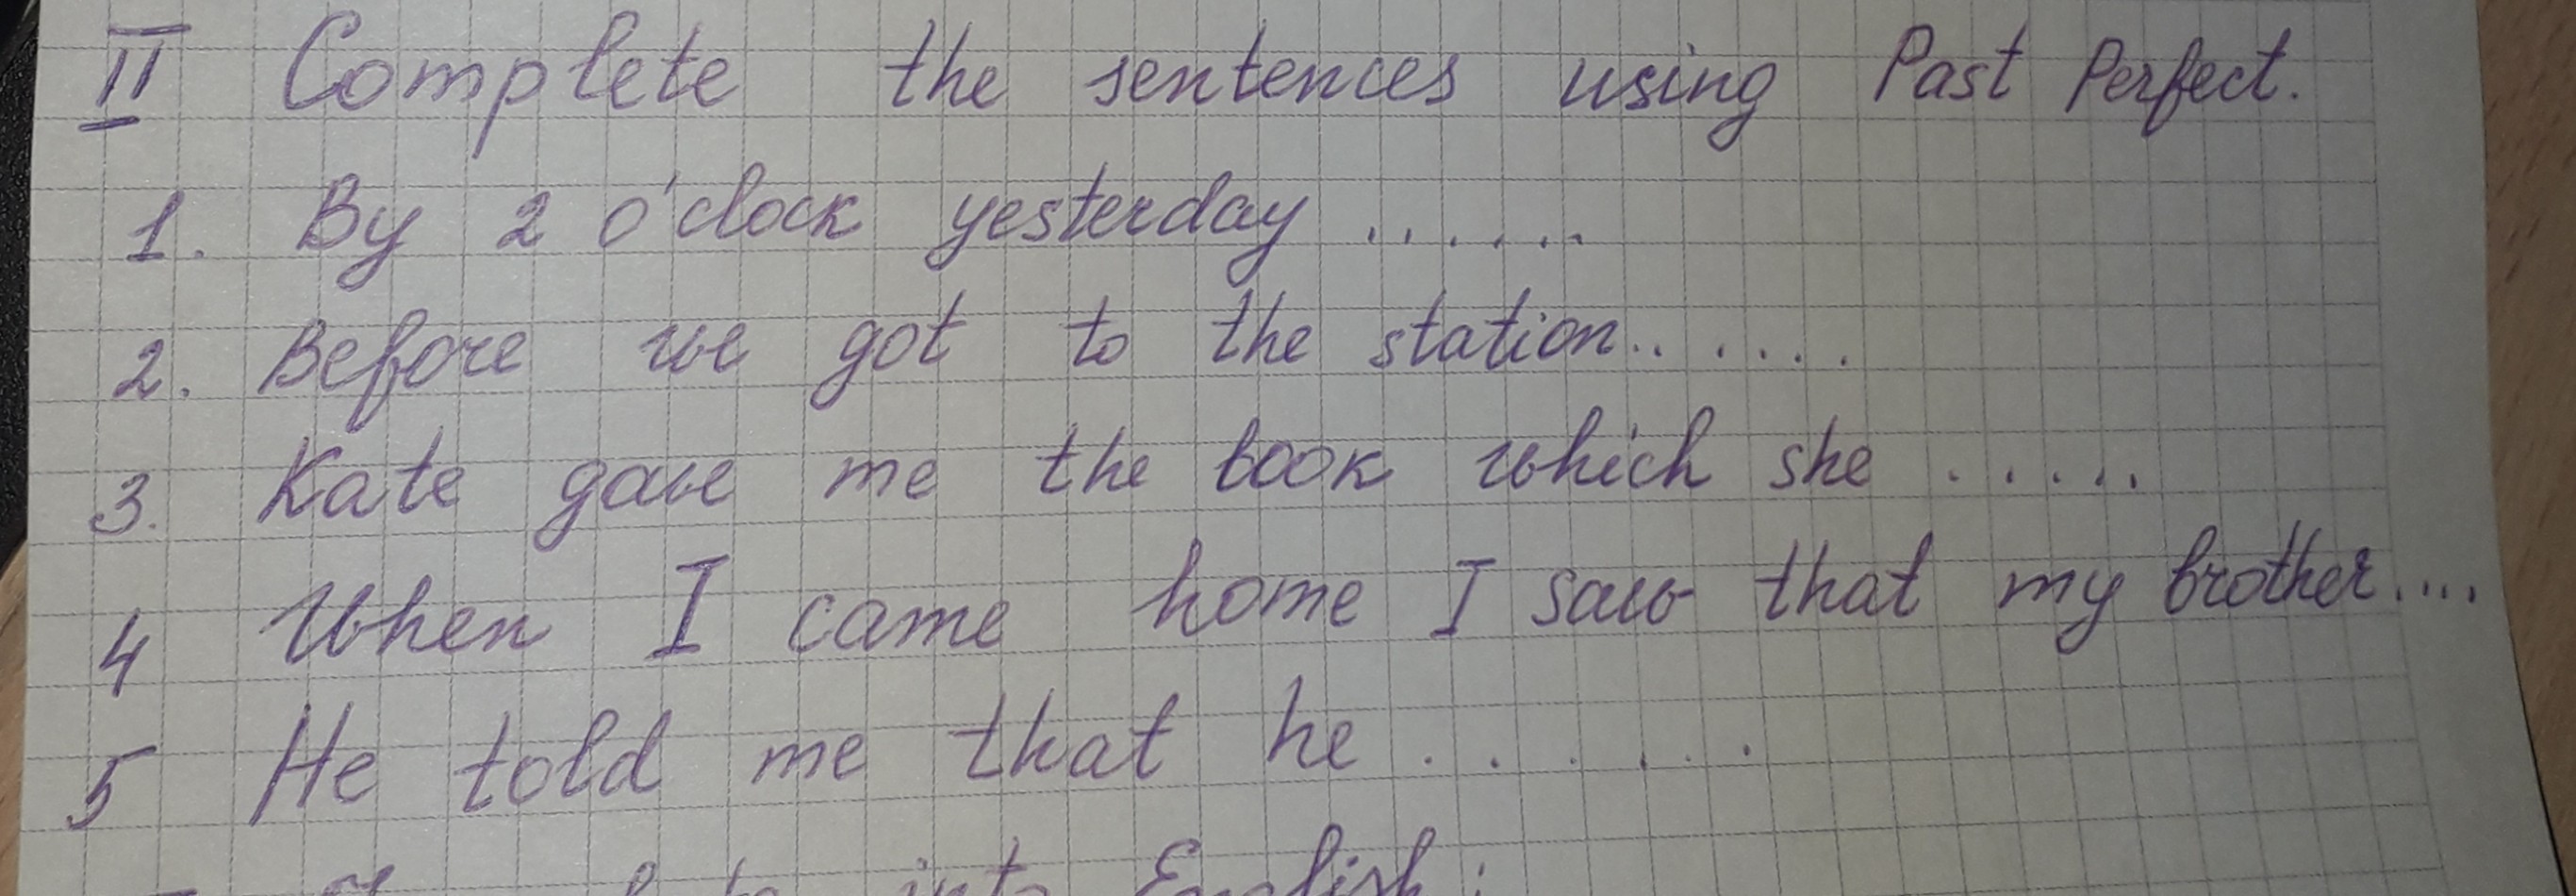 II Complete the sentences using Past Perfect.
1. By 2 o'clock yesterday ......
2. Before we got to the station.......
3. Kate gave me the book which she .....
4 When I came home I saw that my brother....
5 He told me that he ......
into English: